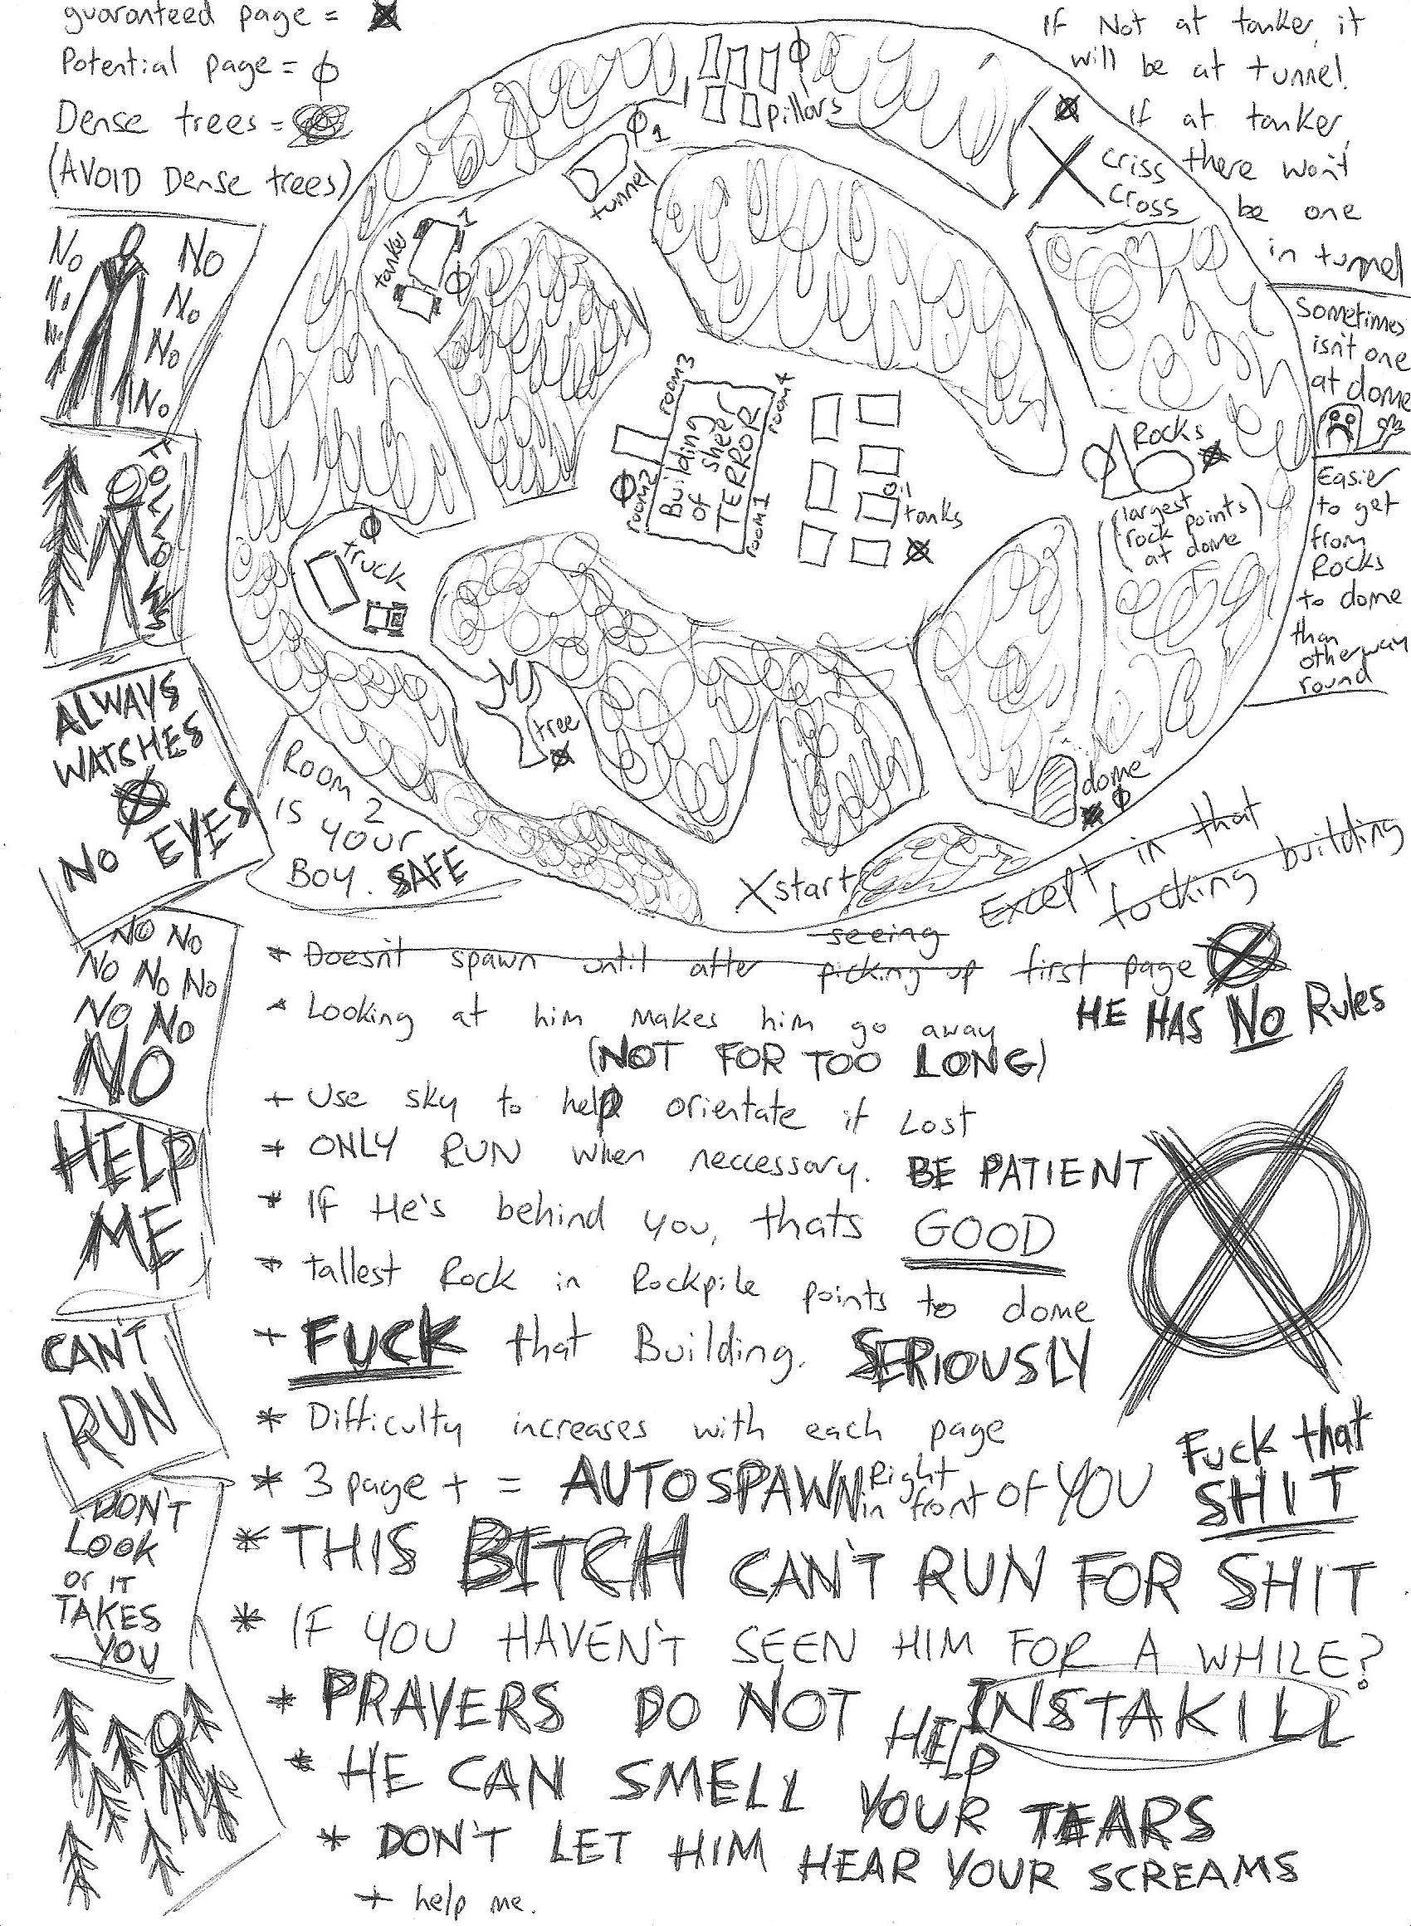 guaranteed page =
Potential page = φ
Dense trees =
(AVOID Dense trees)
If Not at tanker, it
will be at tunnel.
If at tanker,
there won't
be one
in tunnel
pillars
φ
φ1
tunnel
criss
cross
tanker
1
φ
Sometimes
isn't one
at dome
Easier
to get
from
Rocks
to dome
than
otherway
round
Rocks
(largest
rock points
at dome)
room3
room4
Building
of sheer
TERROR
φ
room2
room1
oil
tanks
φ
truck
tree
dome
φ
X start
No No
No No
No No
No
FOLLOWS
ALWAYS
WATCHES
NO EYES
Room 2
is your
Boy. SAFE
NO NO
NO NO NO
NO NO
NO
HELP
ME
CAN'T
RUN
DON'T
LOOK
or IT
TAKES
YOU
Except in that
fucking building
seeing
* Doesn't spawn until after picking up first page
HE HAS NO Rules
* Looking at him makes him go away
(NOT FOR TOO LONG)
* Use sky to help orientate if Lost
* ONLY RUN when neccessary. BE PATIENT
* If He's behind you, thats GOOD
* tallest Rock in Rockpile points to dome
* FUCK that Building. SERIOUSLY
* Difficulty increases with each page
* 3 page + = AUTOSPAWN Right in front of YOU
Fuck that
SHIT
* THIS BITCH CAN'T RUN FOR SHIT
* IF YOU HAVEN'T SEEN HIM FOR A WHILE?
INSTAKILL
* PRAYERS DO NOT HELP
* HE CAN SMELL YOUR TEARS
* DON'T LET HIM HEAR YOUR SCREAMS
* help me.